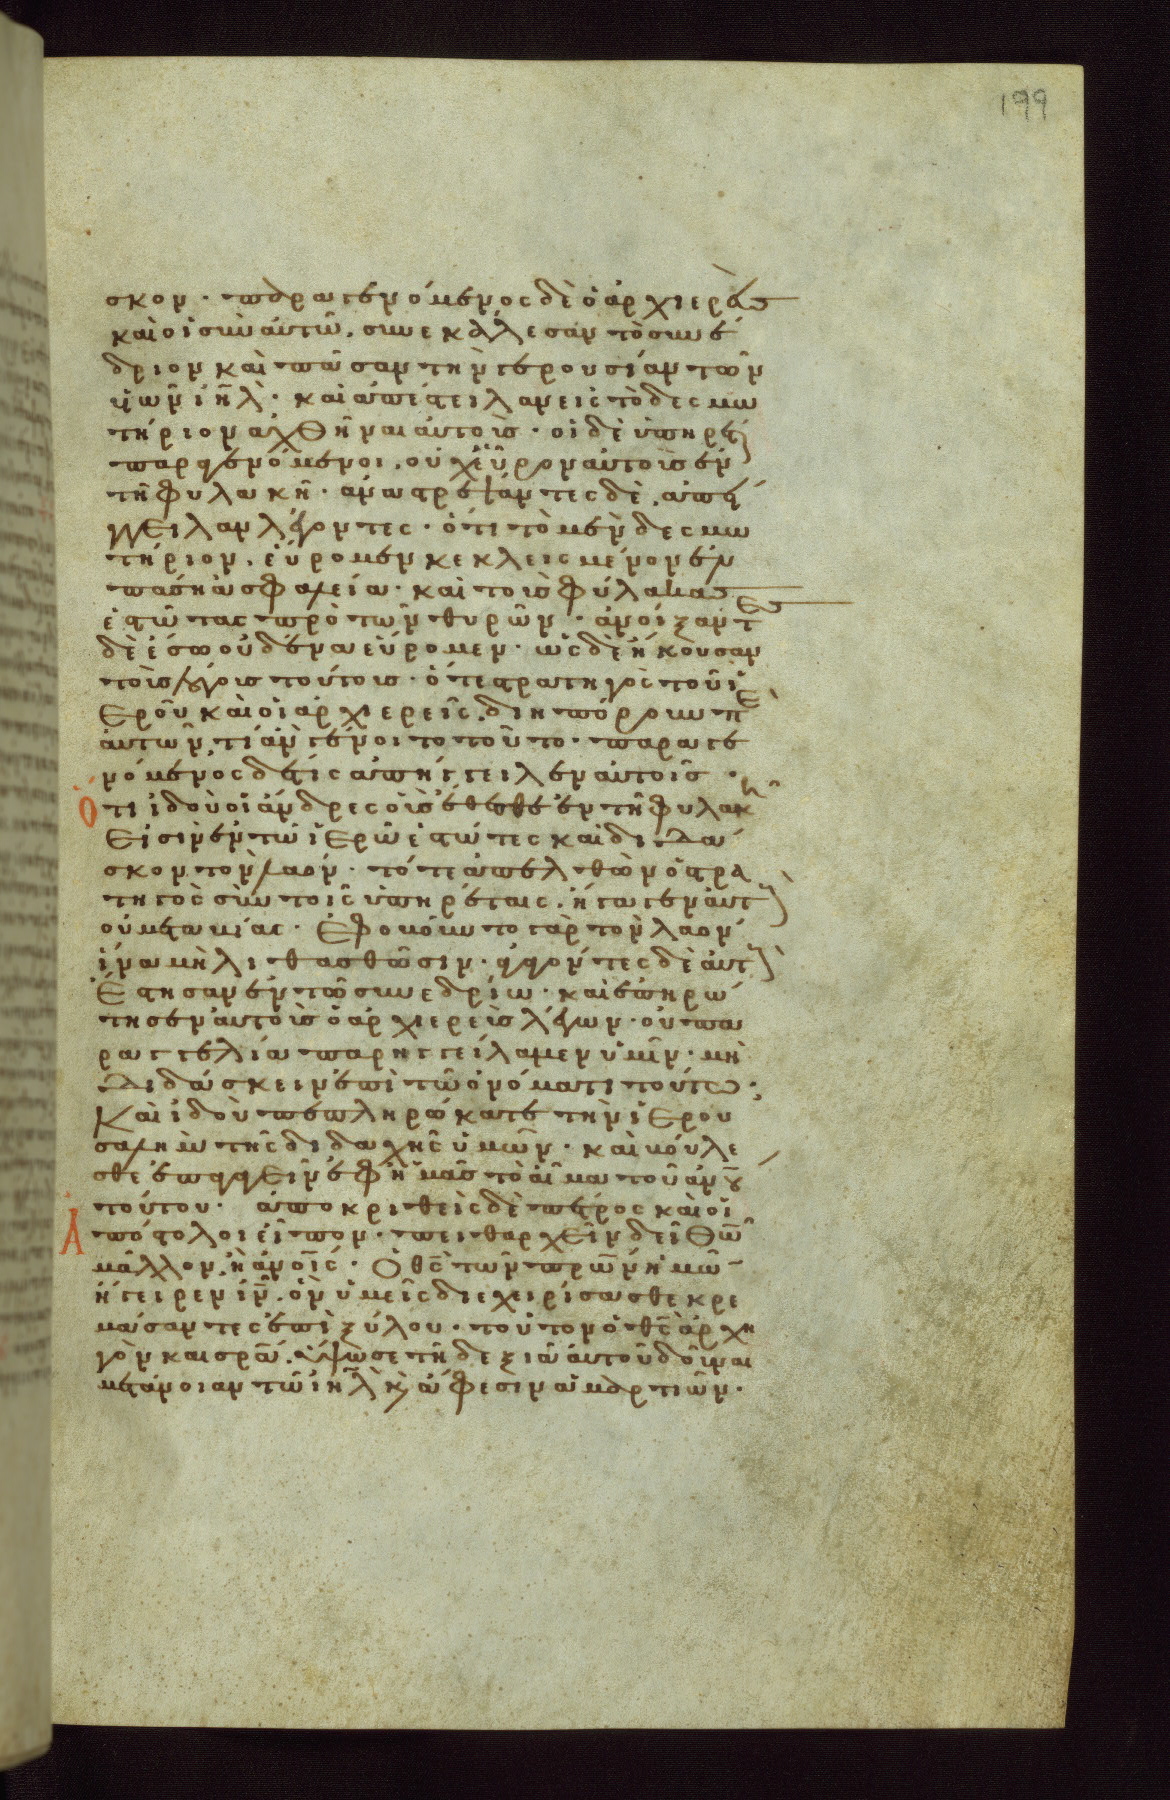 199
σκον · παραγενόμενος δὲ ὁ ἀρχιερεὺς
καὶ οἱ σὺν αὐτῶ · συνεκάλεσαν τὸ συνέ
δριον καὶ πᾶσαν τὴν γερουσίαν τῶν
υἱῶν ιηλ · καὶ ἀπέστειλαν εἰς τὸ δεσμω
τήριον ἀχθῆναι αὐτούς · οἱ δὲ ὑπηρέται
παραγενόμενοι · οὐχ εὗρον αὐτοὺς ἐν
τῆ φυλακῆ · ἀναστρέψαντες δὲ ἀπήγ
γειλαν λέγοντες · ὅτι τὸ μὲν δεσμω
τήριον εὕρομεν κεκλεισμένον ἐν
πάση ἀσφαλεία · καὶ τοὺς φύλακας
ἑστῶτας πρὸ τῶν θυρῶν · ἀνοίξαντες
δὲ ἔσω οὐδένα εὕρομεν · ὡς δὲ ἤκουσαν
τοὺς λόγους τούτους · ὅ τε στρατηγὸς τοῦ ἱ
εροῦ καὶ οἱ ἀρχιερεῖς διηπόρουν περὶ
αὐτῶν τί ἂν γένοιτο τοῦτο · παραγε
νόμενος δέ τις ἀπήγγειλεν αὐτοῖς ·
ὅτι ἰδοὺ οἱ ἄνδρες οὓς ἔθεσθε ἐν τῆ φυλακῆ
εἰσὶν ἐν τῶ ἱερῶ ἑστῶτες καὶ διδά
σκοντες τὸν λαόν · τότε ἀπελθὼν ὁ στρα
τηγὸς σὺν τοῖς ὑπηρέταις · ἤγαγεν αὐτοὺς
οὐ μετὰ βίας · ἐφοβοῦντο γὰρ τὸν λαόν
ἵνα μὴ λιθασθῶσιν · ἀγαγόντες δὲ αὐτοὺς
ἔστησαν ἐν τῶ συνεδρίω · καὶ ἐπηρώ
τησεν αὐτοὺς ὁ ἀρχιερεὺς λέγων · οὐ πα
ραγγελία παρηγγείλαμεν ὑμῖν · μὴ
διδάσκειν ἐπὶ τῶ ὀνόματι τούτω ·
καὶ ἰδοὺ πεπληρώκατε τὴν ἱερου
σαλὴμ τῆς διδαχῆς ὑμῶν · καὶ βούλε
σθε ἐπαγαγεῖν ἐφ ἡμᾶς τὸ αἷμα τοῦ ἀνου
τούτου · ἀποκριθεὶς δὲ πέτρος καὶ οἱ
ἀπόστολοι εἶπον · πειθαρχεῖν δεῖ θω
μᾶλλον ἢ ἀνοις · ὁ θς τῶν πρων ἡμῶν
ἤγειρεν ιν · ὃν ὑμεῖς διεχειρίσασθε κρε
μάσαντες ἐπὶ ξύλου · τοῦτον ὁ θς ἀρχη
γὸν καὶ σρα ὕψωσε τῆ δεξιᾶ αὐτοῦ δοῦναι
μετάνοιαν τῶ ιηλ κ ἄφεσιν ἁμαρτιῶν ·